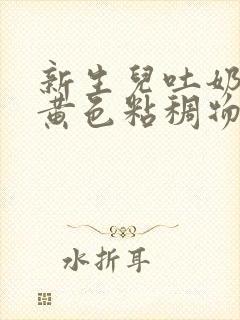 新生兒吐奶
黃色粘稠物
水折耳